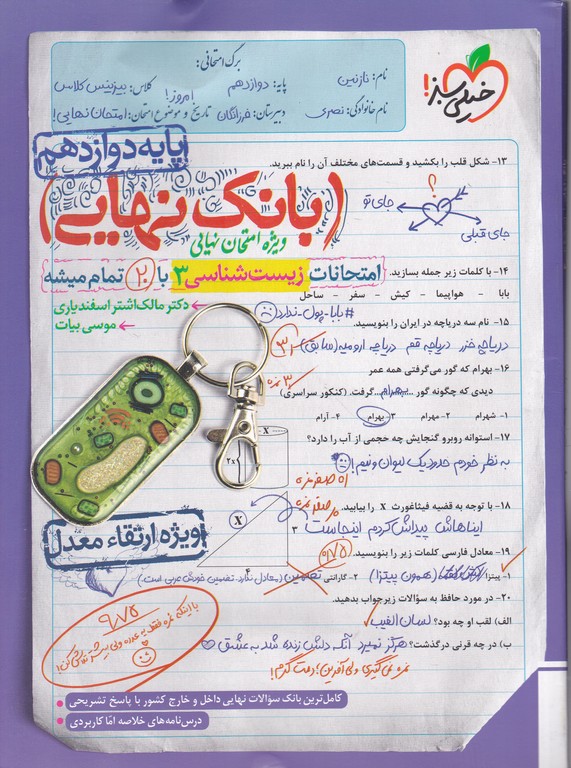 برگ امتحانی:
خیلی سبز!
نام: نازنین
پایه: دوازدهم
کلاس: بیزینس کلاس
نام خانوادگی: نصری
دبیرستان: فرزانگان
تاریخ و موضوع امتحان: امتحان نهایی!
امروز!
پایه دوازدهم
(بانک نهایی)
ویژه امتحان نهایی
امتحانات زیست‌شناسی ۳ با ۲۰ تمام میشه
دکتر مالک‌اشتر اسفندیاری
موسی بیات
۱۳- شکل قلب را بکشید و قسمت‌های مختلف آن را نام ببرید.
؟
جای تو
جای قبلی
۱۴- با کلمات زیر جمله بسازید.
بابا - هواپیما - کیش - سفر - ساحل
#بابا-پول-ندارد
۱۵- نام سه دریاچه در ایران را بنویسید.
دریاچه خزر دریاچه قم دریاچه ارومیه (سابق)
۱۶- بهرام که گور می‌گرفتی همه عمر
دیدی که چگونه گور ...بهرام... گرفت. (کنکور سراسری)
۱- شهرام ۲- مهرام ۳- بهرام ۴- آرام
۱۷- استوانه روبرو گنجایش چه حجمی از آب را دارد؟
به نظر خودم حدود یک لیوان و نیم!
X
۲x
۱۸- با توجه به قضیه فیثاغورث X را بیابید.
ایناهاش پیداش کردم اینجاست
X
۳
۴
ویژه ارتقاء معدل
۱۹- معادل فارسی کلمات زیر را بنویسید.
۱- پیتزا (همون پیتزا)
۲- گارانتی تضمین (معادل ندارد. تضمین خودش عربی است.)
۲۰- در مورد حافظ به سؤالات زیر جواب بدهید.
الف) لقب او چه بود؟ لسان الغیب
ب) در چه قرنی درگذشت؟ هرگز نمیرد آنکه دلش زنده شد به عشق
نمره نمی‌گیری ولی آفرین! دمت گرم!
کامل‌ترین بانک سؤالات نهایی داخل و خارج کشور با پاسخ تشریحی
درس‌نامه‌های خلاصه امّا کاربردی